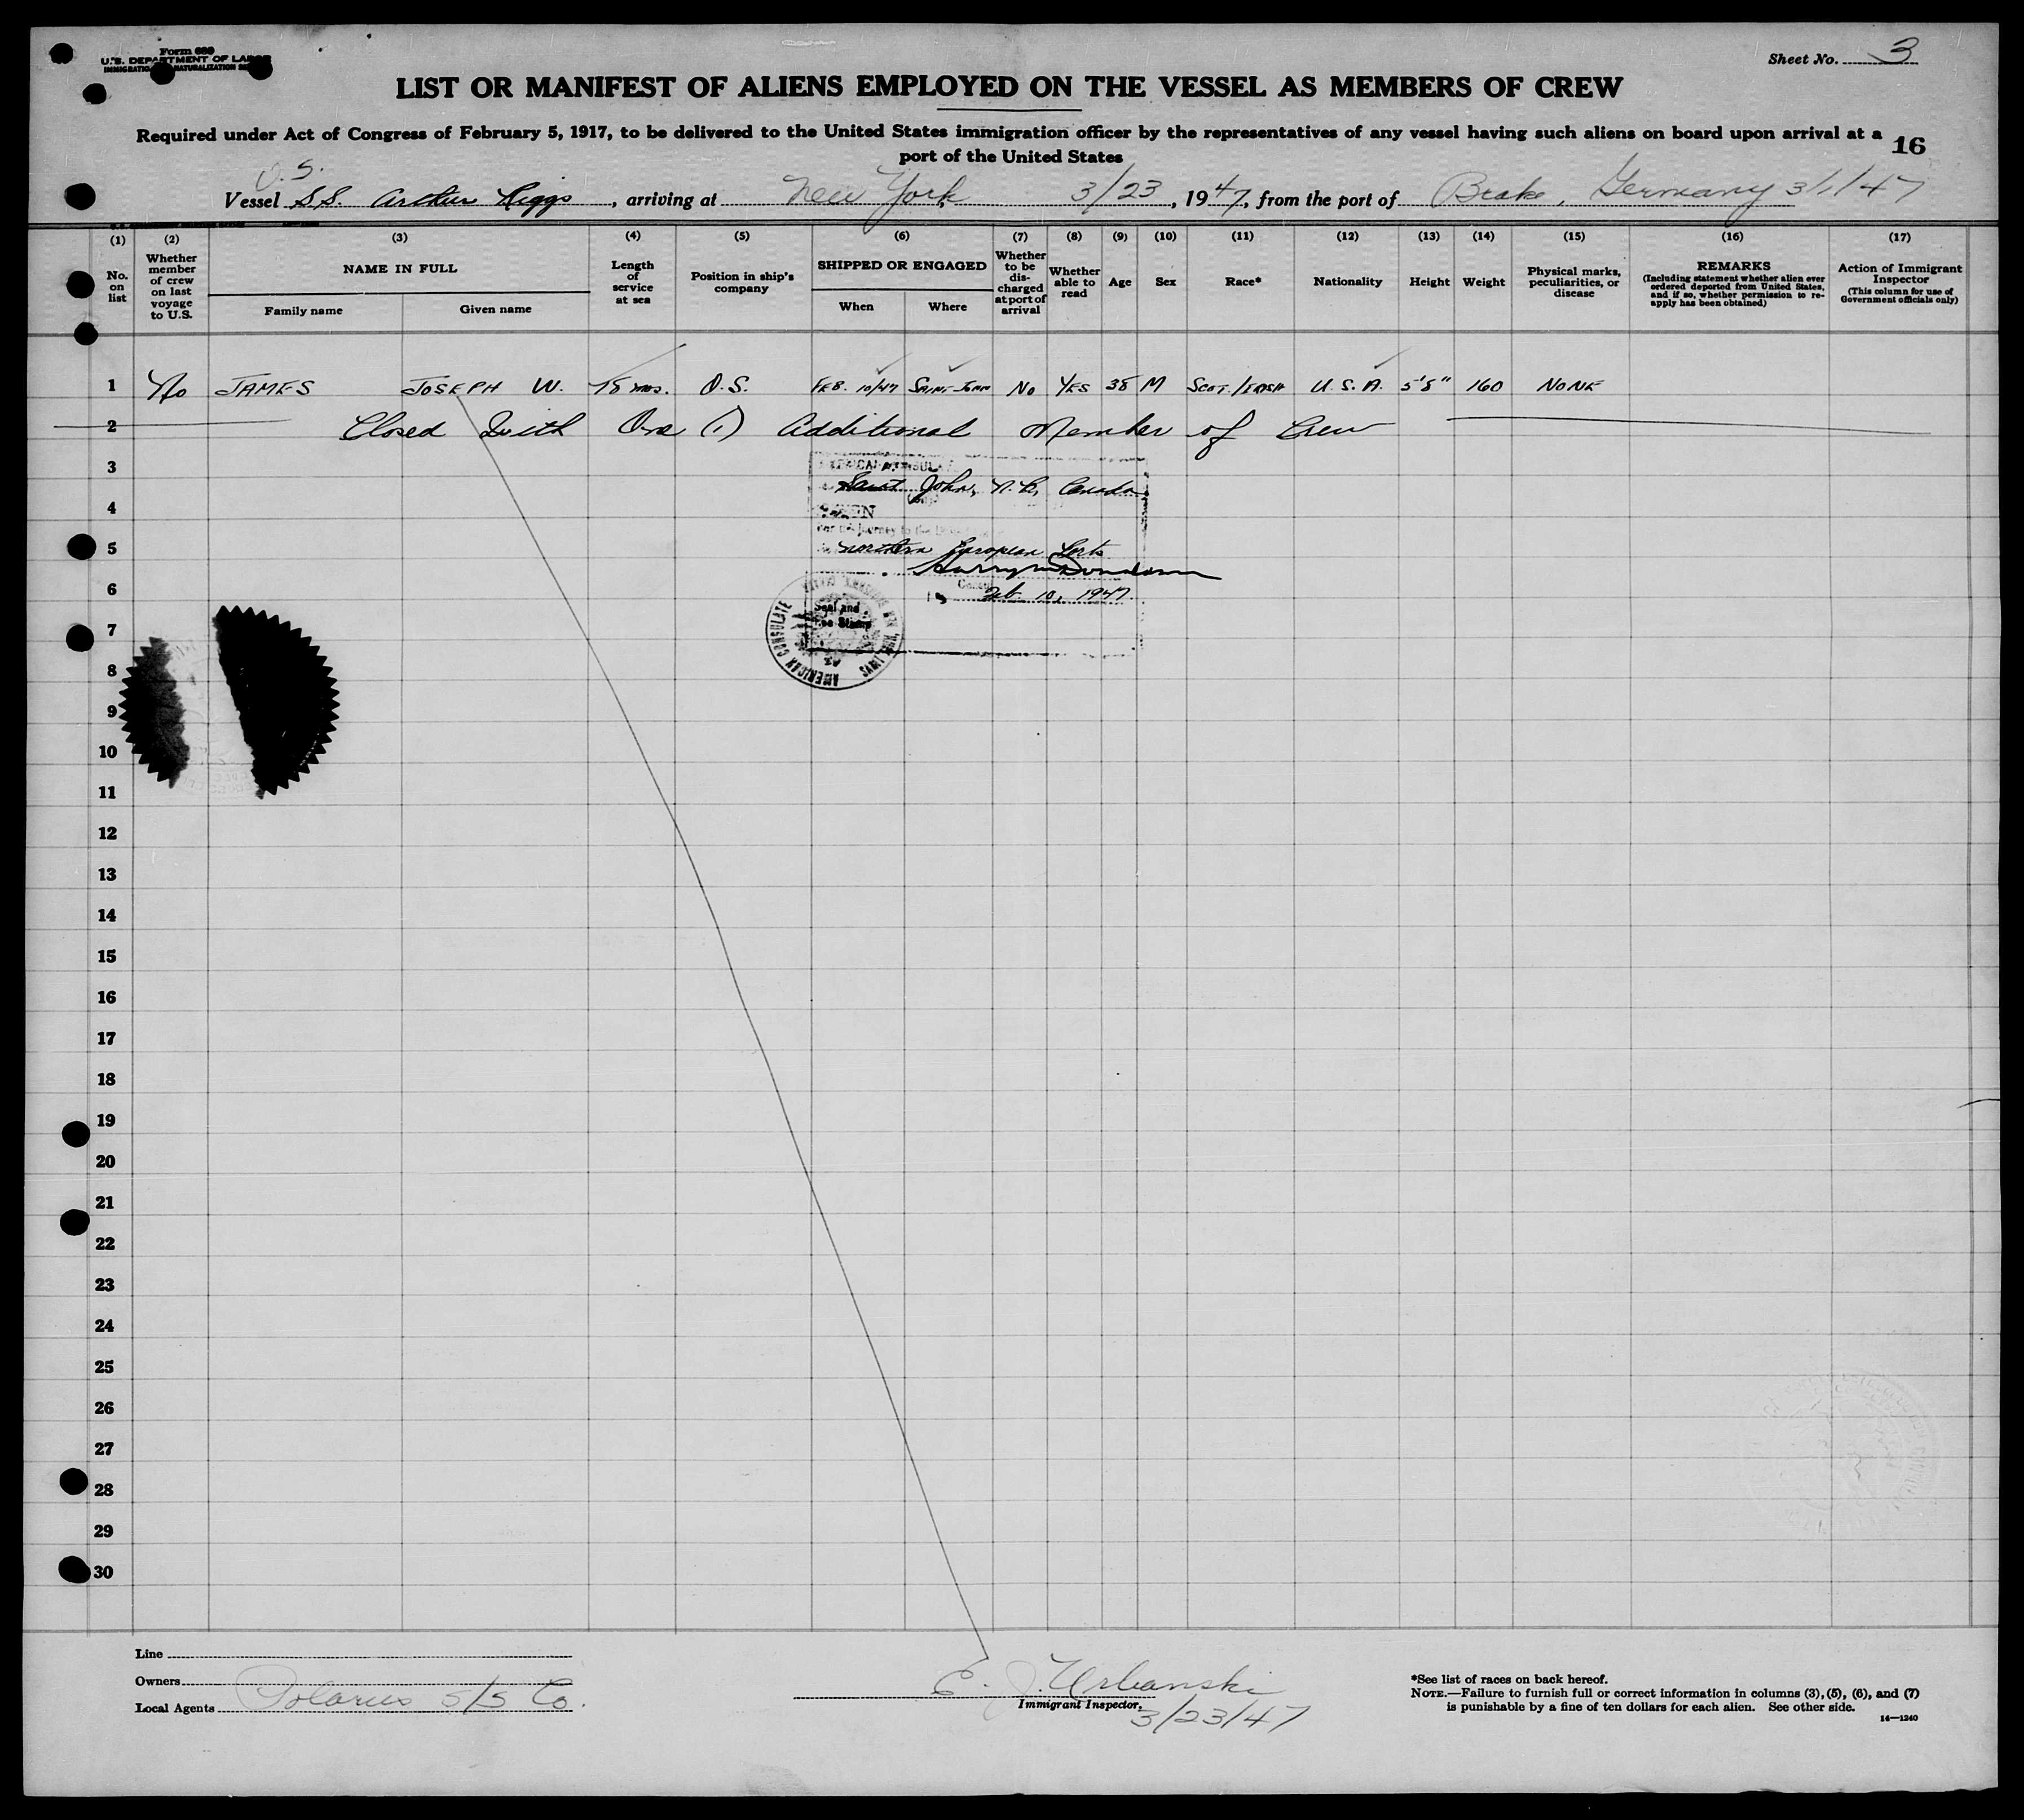 Form 689
U.S. DEPARTMENT OF LABOR
IMMIGRATION NATURALIZATION
Sheet No. 3
LIST OR MANIFEST OF ALIENS EMPLOYED ON THE VESSEL AS MEMBERS OF CREW
Required under Act of Congress of February 5, 1917, to be delivered to the United States immigration officer by the representatives of any vessel having such aliens on board upon arrival at a
port of the United States
16
Vessel S.S. Arthur Riggs, arriving at New York 3/23, 1947, from the port of Brake, Germany 3/1/47
(1) (2) (3) (4) (5) (6) (7) (8) (9) (10) (11) (12) (13) (14) (15) (16) (17)
No. on list
Whether member of crew on last voyage to U.S.
NAME IN FULL
Family name
Given name
Length of service at sea
Position in ship's company
SHIPPED OR ENGAGED
When
Where
Whether to be discharged at port of arrival
Whether able to read
Age
Sex
Race*
Nationality
Height
Weight
Physical marks, peculiarities, or disease
REMARKS
(Including statement whether alien ever ordered deported from United States, and if so, whether permission to re-apply has been obtained)
Action of Immigrant Inspector
(This column for use of Government officials only)
1 No JAMES JOSEPH W. O.S. FEB. 10/47 SAINT JOHN No YES 38 M SCOT./IRISH U.S.A. 5'8" 160 NONE
2 Closed With One (1) Additional Member of Crew
3
Saint John, N.B., Canada
4
5
Northern European Ports
6
Feb. 10, 1947
Seal and
Fee Stamp
AMERICAN CONSULATE
7
8
9
10
11
12
13
14
15
16
17
18
19
20
21
22
23
24
25
26
27
28
29
30
Line
Owners
Local Agents Polarus S/S Co.
E. J. Urbanski
Immigrant Inspector.
3/23/47
*See list of races on back hereof.
NOTE.—Failure to furnish full or correct information in columns (3), (5), (6), and (7)
is punishable by a fine of ten dollars for each alien. See other side.
14—1240